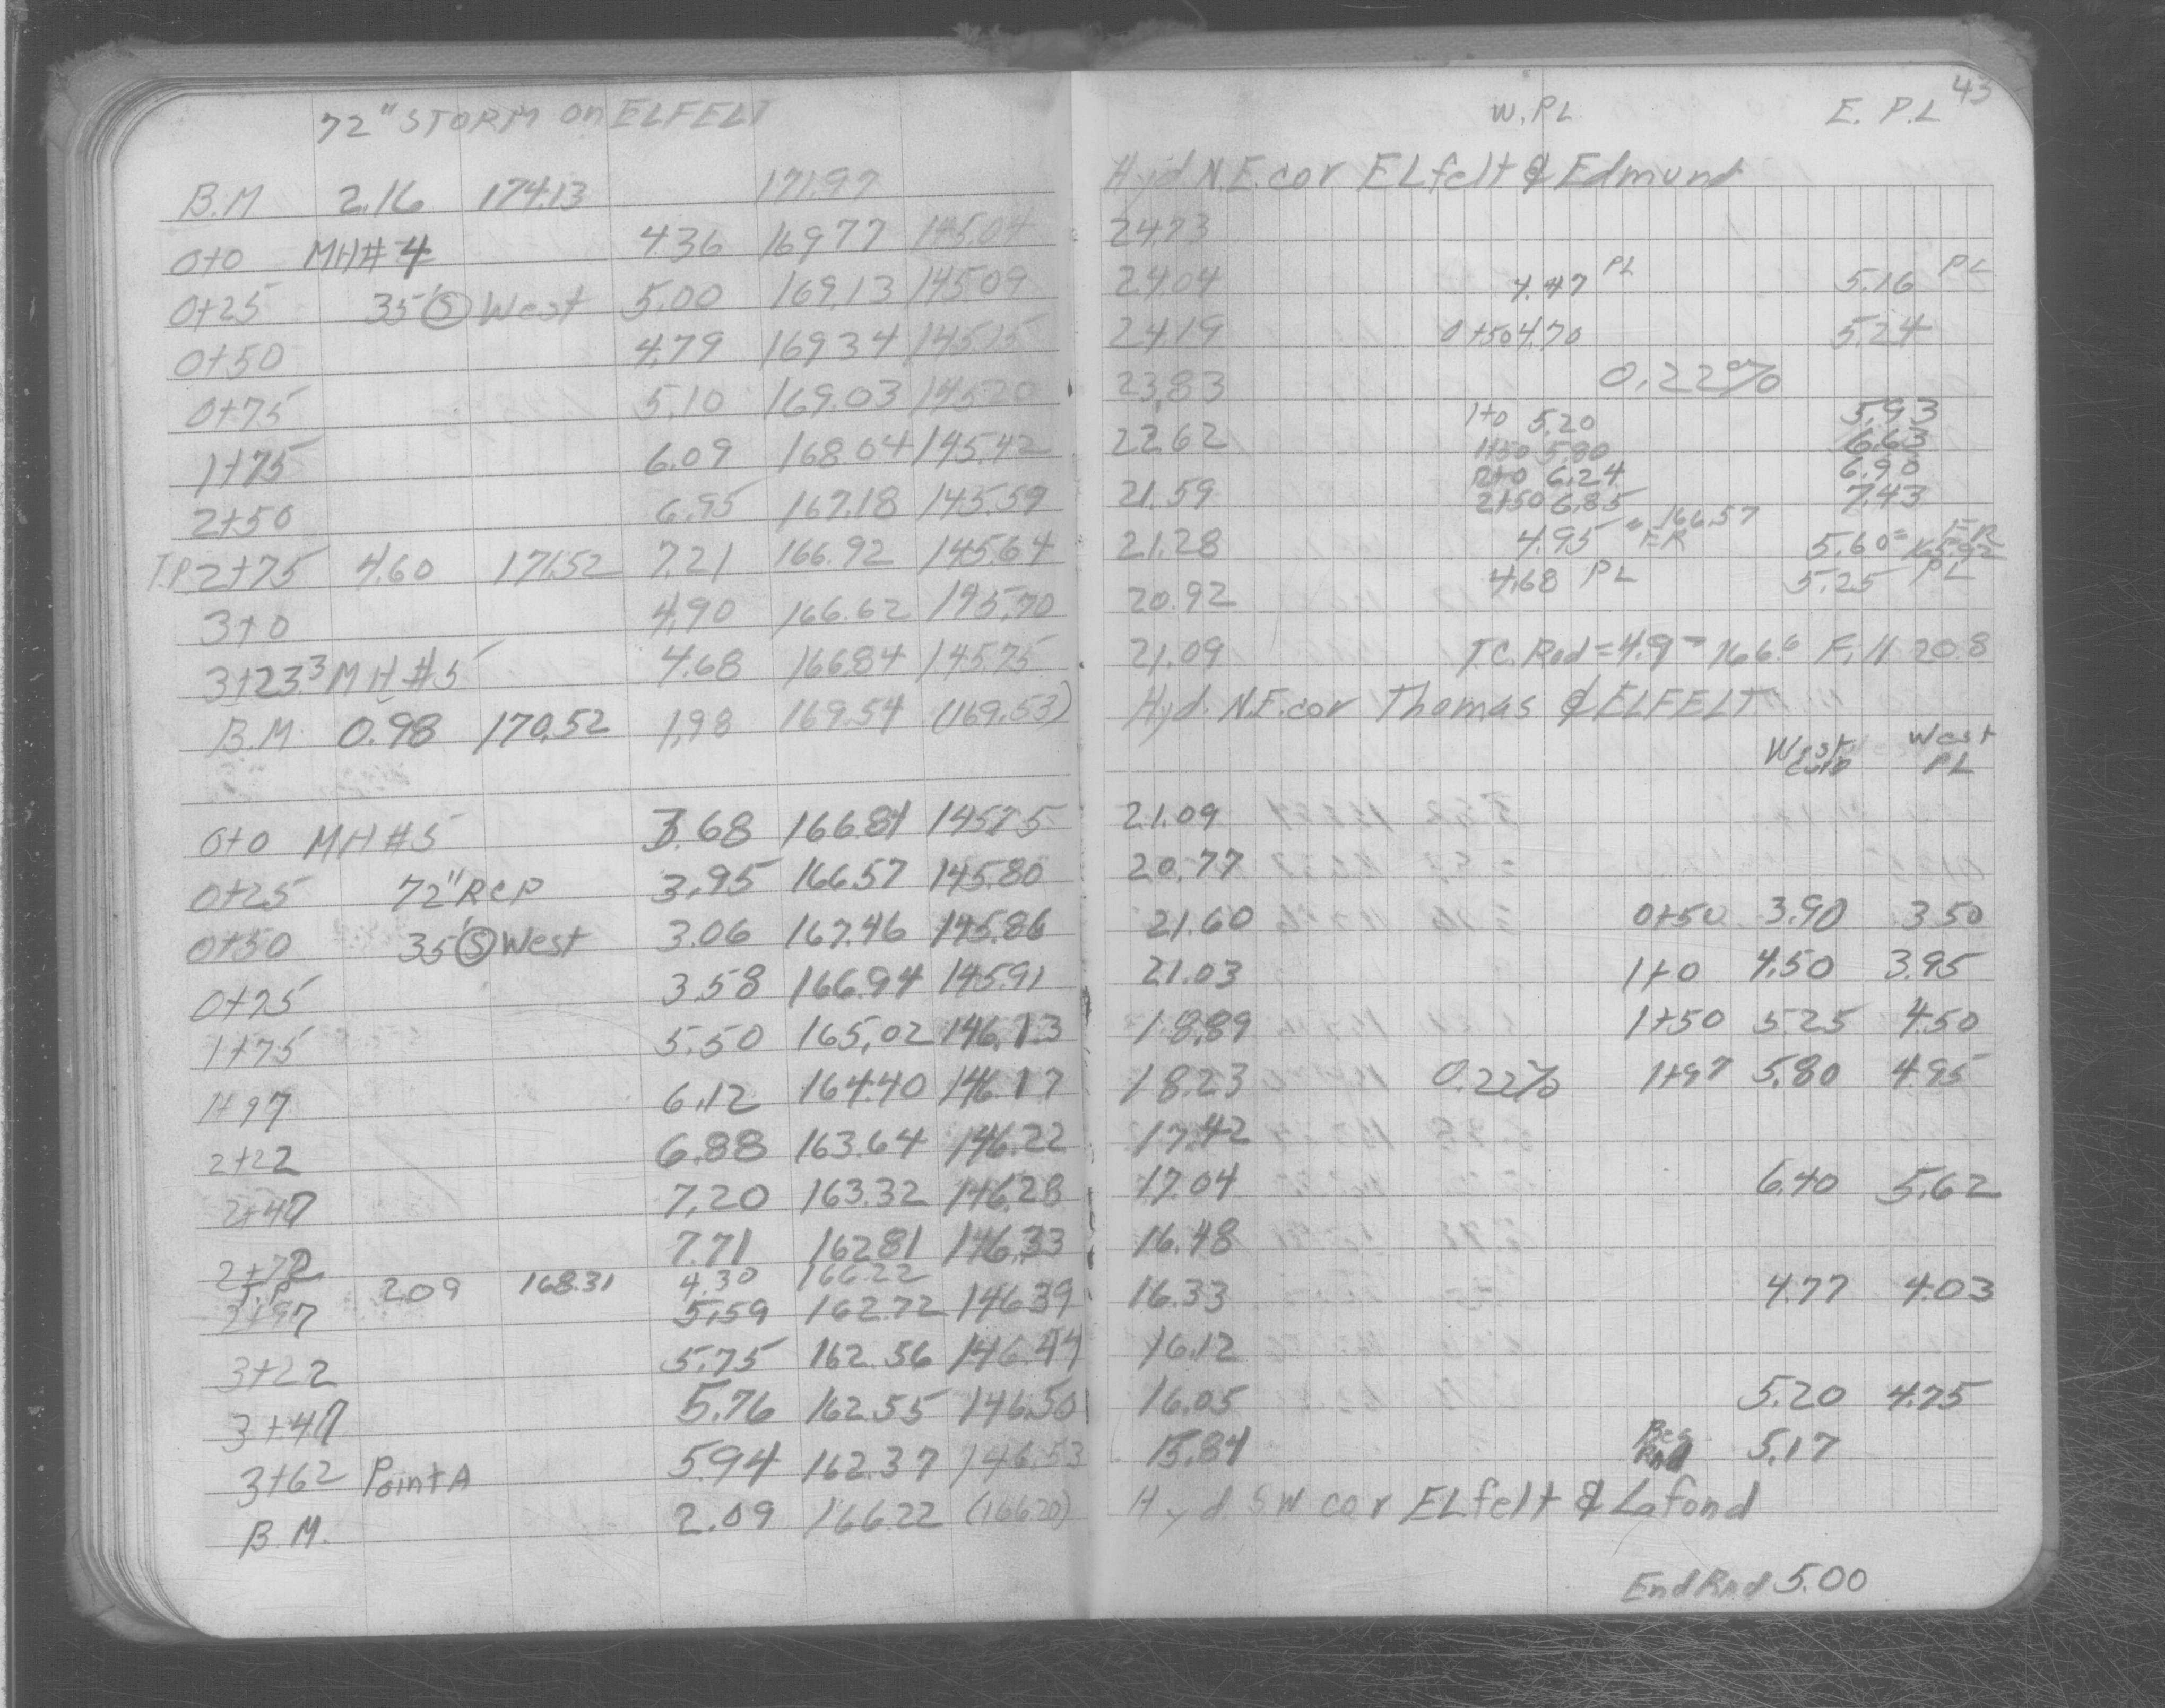 72" STORM on ELFELT
B.M 2.16 174.13 171.97
0+0 MH#4 4.36 169.77 145.04
0+25 35' Ⓢ West 5.00 169.13 145.09
0+50 4.79 169.34 145.15
0+75 5.10 169.03 145.20
1+75 6.09 168.04 145.42
2+50 6.95 167.18 145.59
T.P 2+75 4.60 171.52 7.21 166.92 145.64
3+0 4.90 166.62 145.70
3+23³ MH#5 4.68 166.84 145.75
B.M. 0.98 170.52 1.98 169.54 (169.53)
0+0 MH#5 3.68 166.84 145.75
0+25 72" RCP 3.95 166.57 145.80
0+50 35' Ⓢ West 3.06 167.46 145.86
0+75 3.58 166.94 145.91
1+75 5.50 165.02 146.13
1+97 6.12 164.40 146.17
2+22 6.88 163.64 146.22
2+47 7.20 163.32 146.28
2+72 7.71 162.81 146.33
T.P. 2.09 168.31 4.30 166.22
2+97 5.59 162.72 146.39
3+22 5.75 162.56 146.44
3+47 5.76 162.55 146.50
3+62 Point A 5.94 162.37 146.53
B.M. 2.09 166.22 (166.20)
43
W. PL E. P.L
Hyd N.E. cor ELfelt & Edmund
24.73
24.04 4.47 PL 5.16 PL
24.19 0+50 4.70 5.24
23.83 0.22%
22.62 1+0 5.20 5.93
1+50 5.80 6.63
2+0 6.24 6.90
21.59 2+50 6.85 7.43
21.28 4.95 = 166.57 ER 5.60 = 165.92 ER
20.92 4.68 PL 5.25 PL
21.09 T.C. Rod = 4.9 = 166.6 Fill 20.8
Hyd. N.E. cor Thomas & ELFELT
West curb West PL
21.09
20.77
21.60 0+50 3.90 3.50
21.03 1+0 4.50 3.95
18.89 1+50 5.25 4.50
18.23 0.22% 1+97 5.80 4.95
17.42
17.04 6.40 5.62
16.48
16.33 4.77 4.03
16.12
16.05 5.20 4.75
15.84 Beg Rnd 5.17
Hyd. S W cor ELfelt & Lafond
End Rnd 5.00